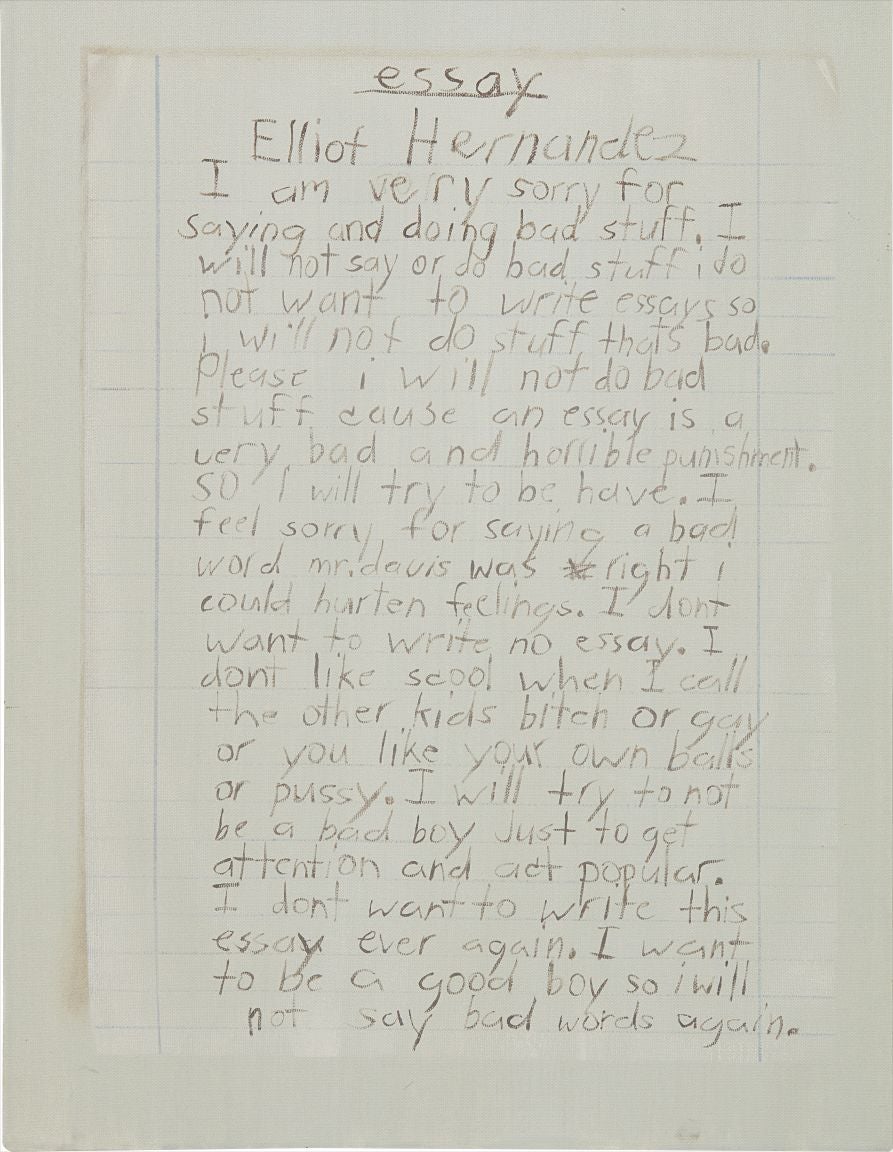 essay
Elliot Hernandez
I am very sorry for
saying and doing bad stuff. I
will not say or do bad stuff i do
not want to write essays so
i will not do stuff thats bad.
Please i will not do bad
stuff cause an essay is a
very bad and horrible punishment.
SO I will try to be have. I
feel sorry for saying a bad
word mr. davis was right i
could hurten feelings. I dont
want to write no essay. I
dont like scool when I call
the other kids bitch or gay
or you like your own balls
or pussy. I will try to not
be a bad boy Just to get
attention and act popular.
I dont want to write this
essay ever again. I want
to be a good boy so i will
not say bad words again.